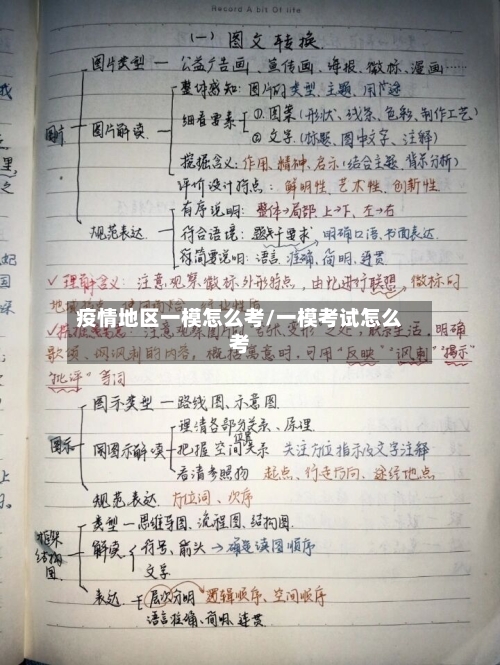 Record A bit Of life
(一) 图文转换
图片
图片类型 — 公益广告画、宣传画、海报、徽标、漫画……
图片解读
整体感知: 图片的类型、主题、用途
细看要素
①图案(形状、线条、色彩、制作工艺)
②文字(标题、图中文字、注释)
挖掘含义: 作用、精神、启示(结合主题、背景分析)
评价设计特点: 鲜明性、艺术性、创新性
规范表达
有序说明: 整体→局部 上→下、左→右
符合语境: 题干要求 明确口语、书面表达
符简要说明: 语言准确、简明、连贯
√理解含义: 注意观察徽标外形特点, 由此进行联想, 徽标的
疫情地区一模怎么考/一模考试怎么
考
明确
歌颂、讽刺的内容, 概括寓意时, 可用"反映""讽刺""揭示"
"批评"等词
图示
图示类型 — 路线图、示意图
图图示解读
理清各部分关系、原理
把握空间位置关系 关注方位指示及文字注释
看清参照物 起点、行走方向、途经地点
规范表达 方位词、次序
框架结构图
类型 — 思维导图、流程图、结构图
解读
符号、箭头 → 确定读图顺序
文字
表达
层次分明 逻辑顺序、空间顺序
语言准确、简明、连贯